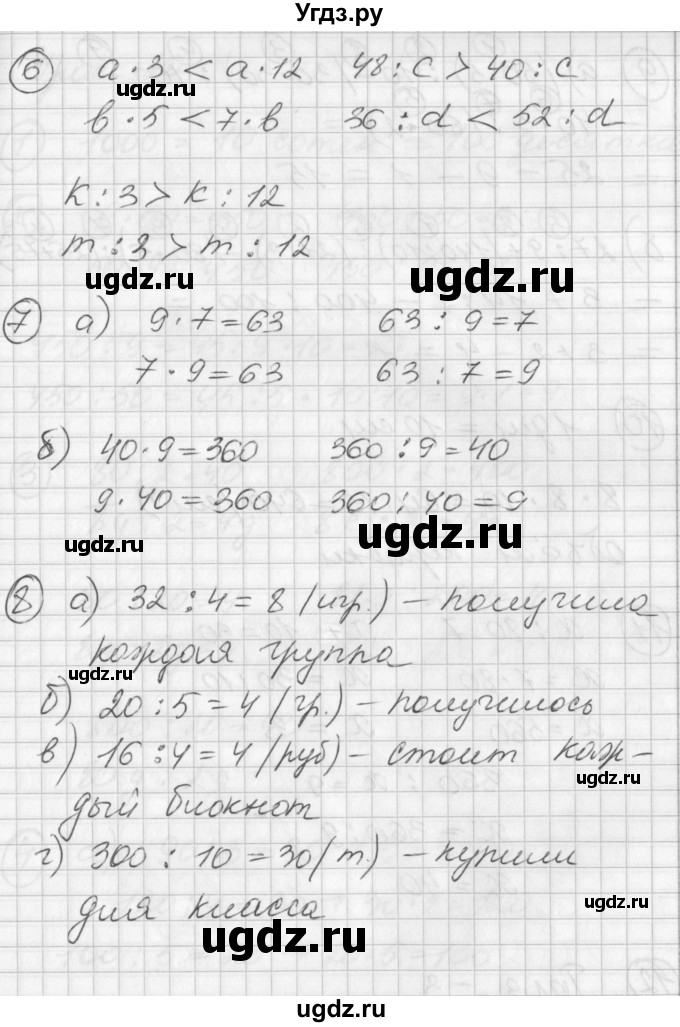 Угдз.ру
6 a · 3 < a · 12 48 : c > 40 : c
ugdz.ru ugdz.ru
в · 5 < 7 · в 36 : d < 52 : d
k : 3 > k : 12
m : 3 > m : 12
ugdz.ru ugdz.ru
7 а) 9 · 7 = 63 63 : 9 = 7
7 · 9 = 63 63 : 7 = 9
ugdz.ru
б) 40 · 9 = 360 360 : 9 = 40
9 · 40 = 360 360 : 40 = 9
ugdz.ru ugdz.ru
8 а) 32 : 4 = 8 (игр.) – получила
ugdz.ru
каждая группа
ugdz.ru
б) 20 : 5 = 4 (гр.) – получилось
в) 16 : 4 = 4 (руб) – стоит каж-
ugdz.ru
дый блокнот
г) 300 : 10 = 30 (т.) – купили
для класса
ugdz.ru
ugdz.ru
ugdz.ru